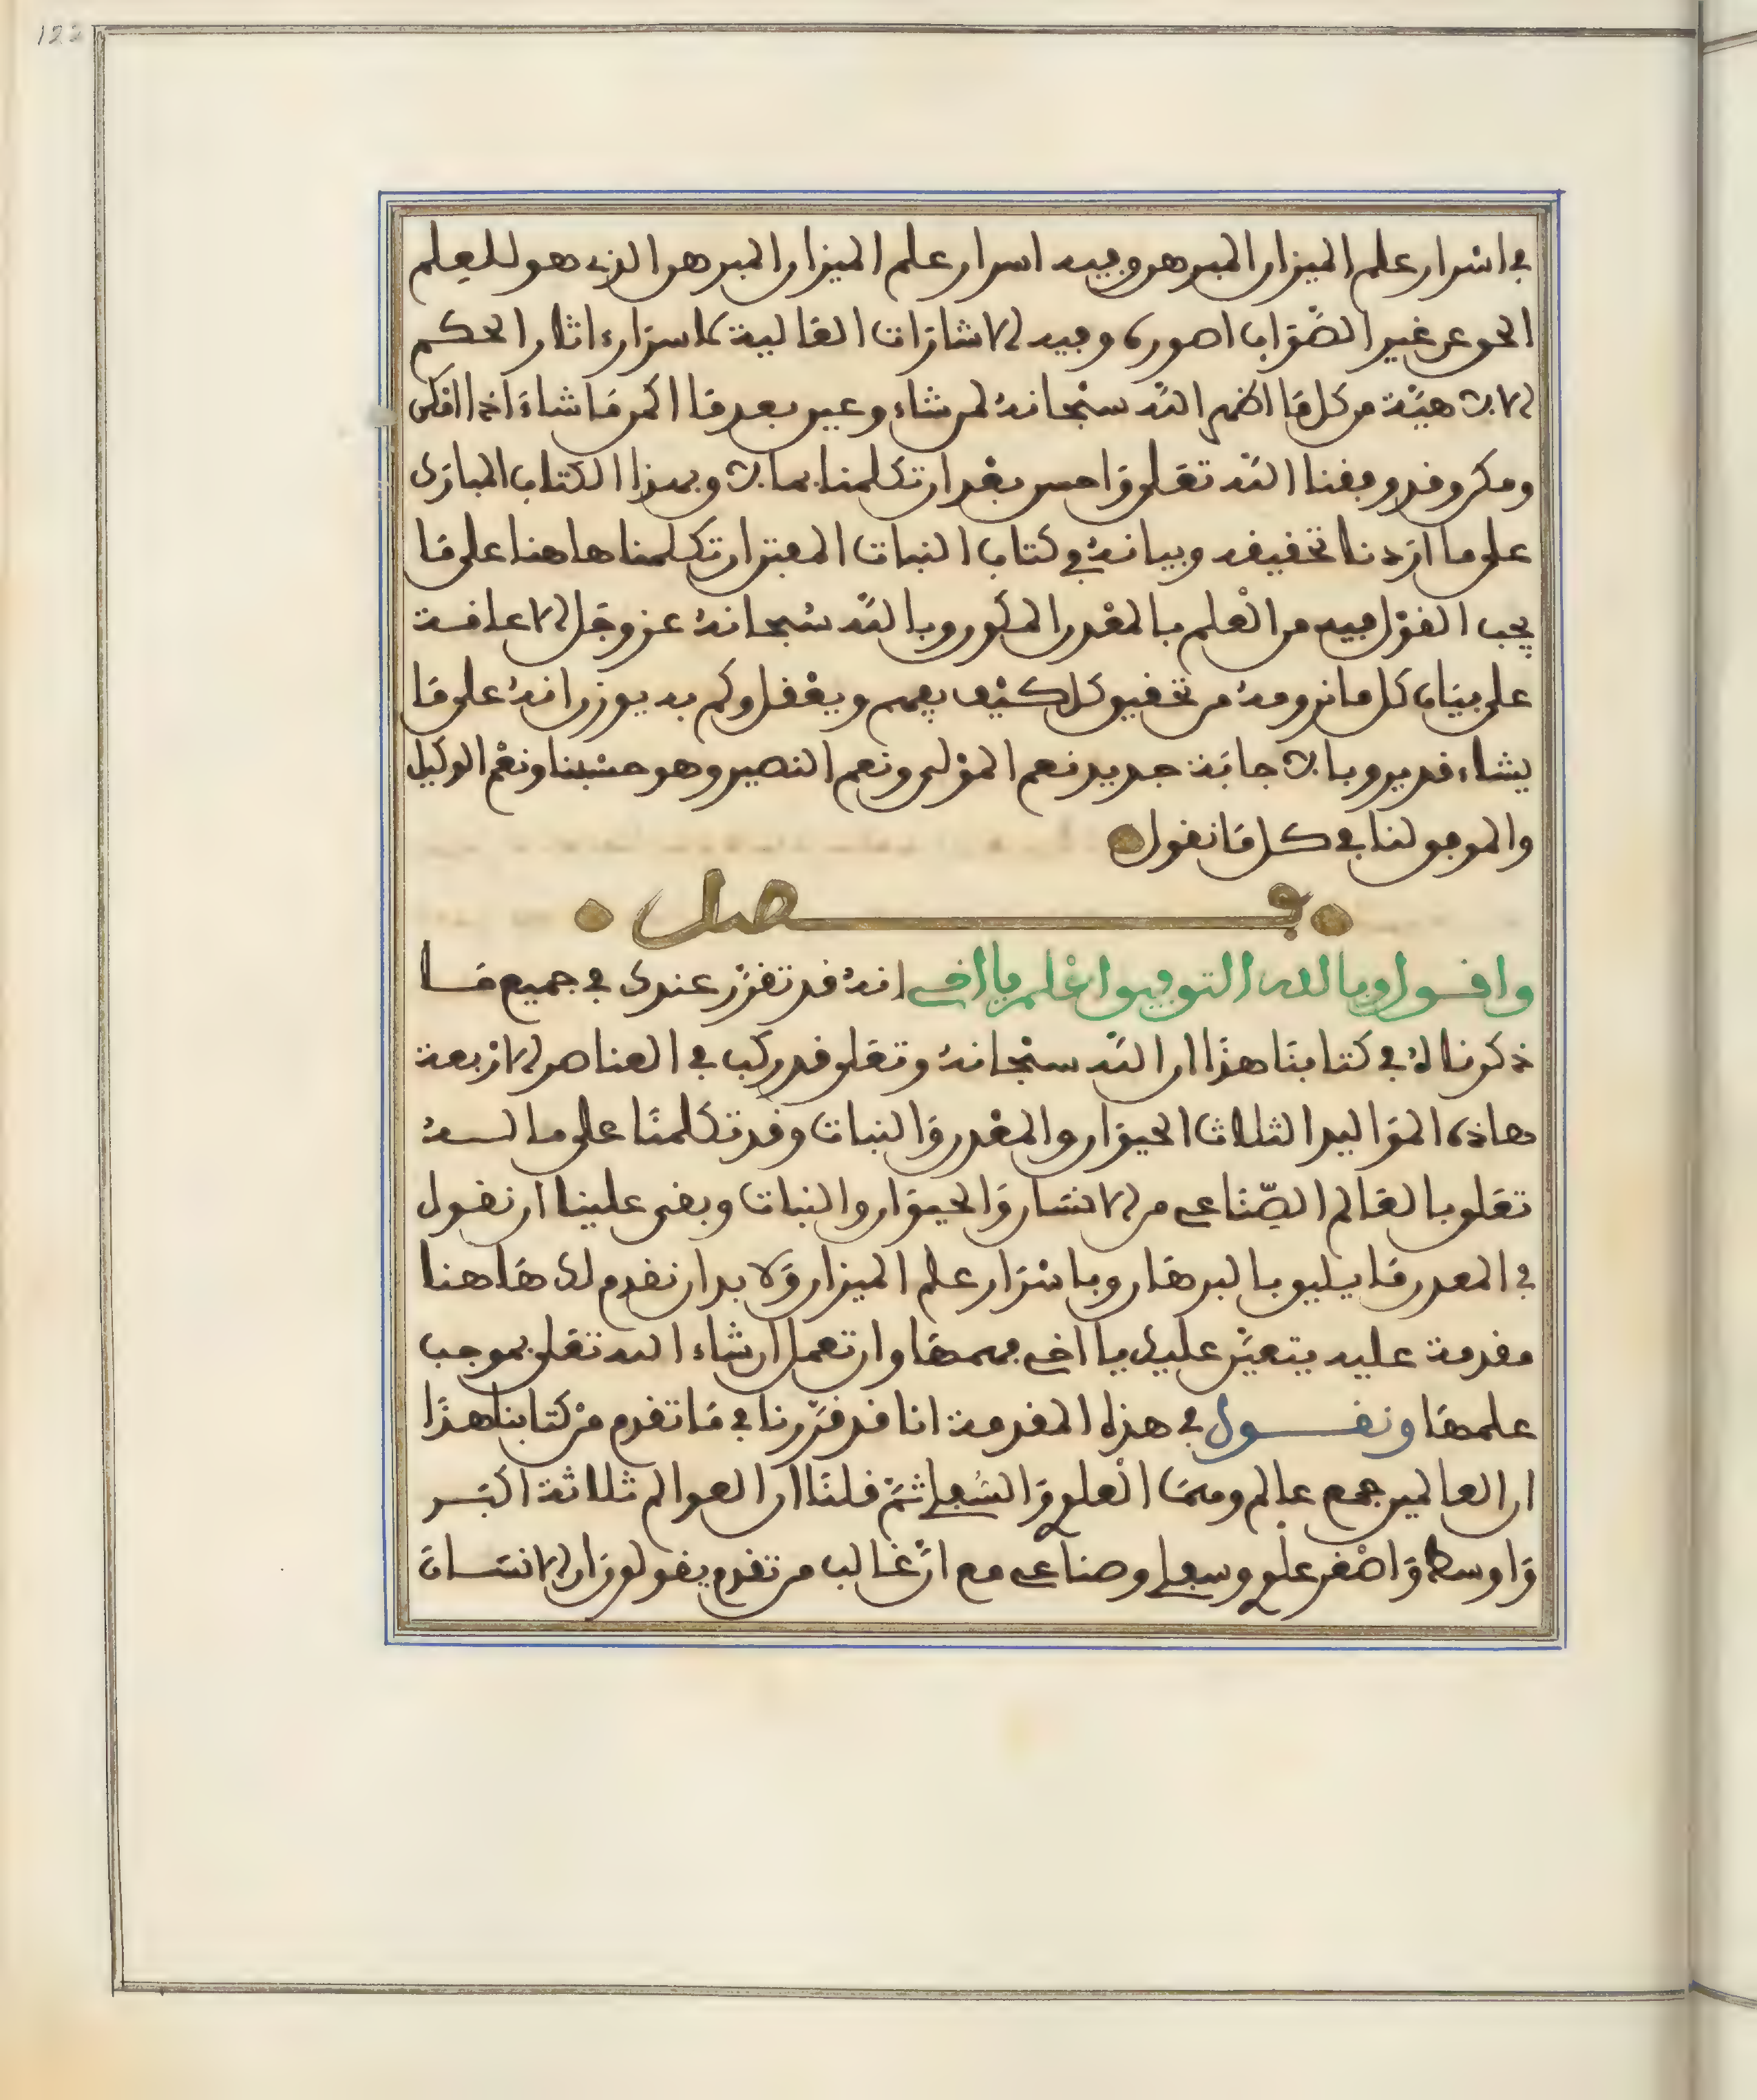 122
في اسرار علم الميزان المبرهن وفيه اسرار علم الميزان المبرهن الذي هو للعلم
الحق عن غير الصواب وفيه الاشارات العالية لاسرار اثار الحكم
الالاهية من كل ما اظهر الله سبحانه لمن شاء وغير بعد ما
وقد وفقنا الله تعلى واحسن بعد ان تكلمنا وبهذا الكتاب المبارك
على ما اردنا تحقيقه وبيانه في كتاب النبات ان تكلمنا هاهنا على ما
يجب القول فيه من العلم بالمعدن المذكور وبالله سبحانه عز وجل الاعانة
على بيان كل ما نرومه من تحقيق كل يفهم ويعقل ولم به يوزن انه على ما
يشاء قدير وبالاجابة جدير نعم المولى ونعم النصير وهو حسبنا ونعم الوكيل
والموفق لنا في كل ما نقول
فصل
واقول وبالله التوفيق اعلم يا اخي انه قد تقرر عندك في جميع ما
ذكرناه في كتابنا هذا ان الله سبحانه وتعلى قد ركب في العناصر الاربعة
هاذه المواليد الثلاث الحيوان والمعدن والنبات وقد تكلمنا على ما لله
تعلى بالعالم الصناعي من الانسان والحيوان والنبات وبقى علينا ان نقول
في المعدن ما يليق بالبرهان وباسرار علم الميزان ولا بد ان نقدم لك هاهنا
مقدمة عليه يتعين عليك يا اخي فهمها وان تعمل ان شاء الله تعلى بموجب
علمها ونقول في هذه المقدمة انا قد قررنا في ما تقدم من كتابنا هذا
ان العالمين جمع عالم وهما العلوي والسفلي ثم قلنا ان العوالم ثلاثة اكبر
واوسط واصغر علوي وسفلي وصناعي مع ان غالب من تقدم يقولون ان الانسان